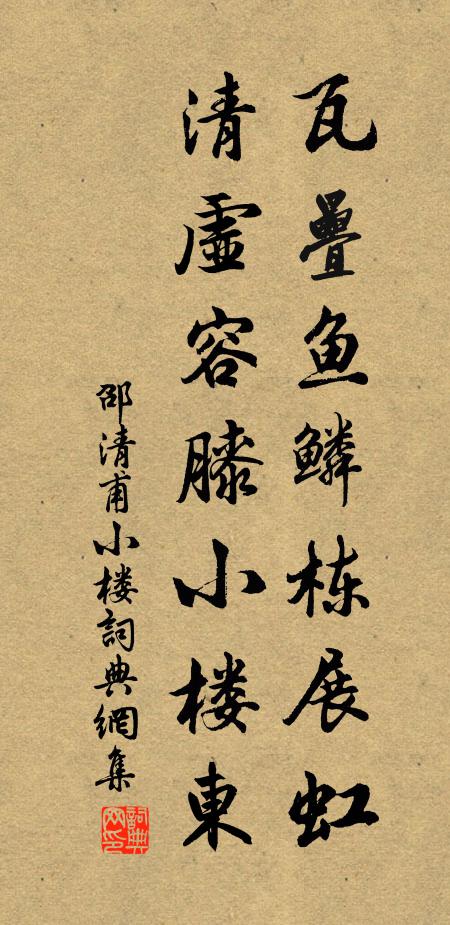 瓦疊鱼鳞栋展虹
清虛容膝小楼東
邵清甫小楼詞典網集
詞典網印